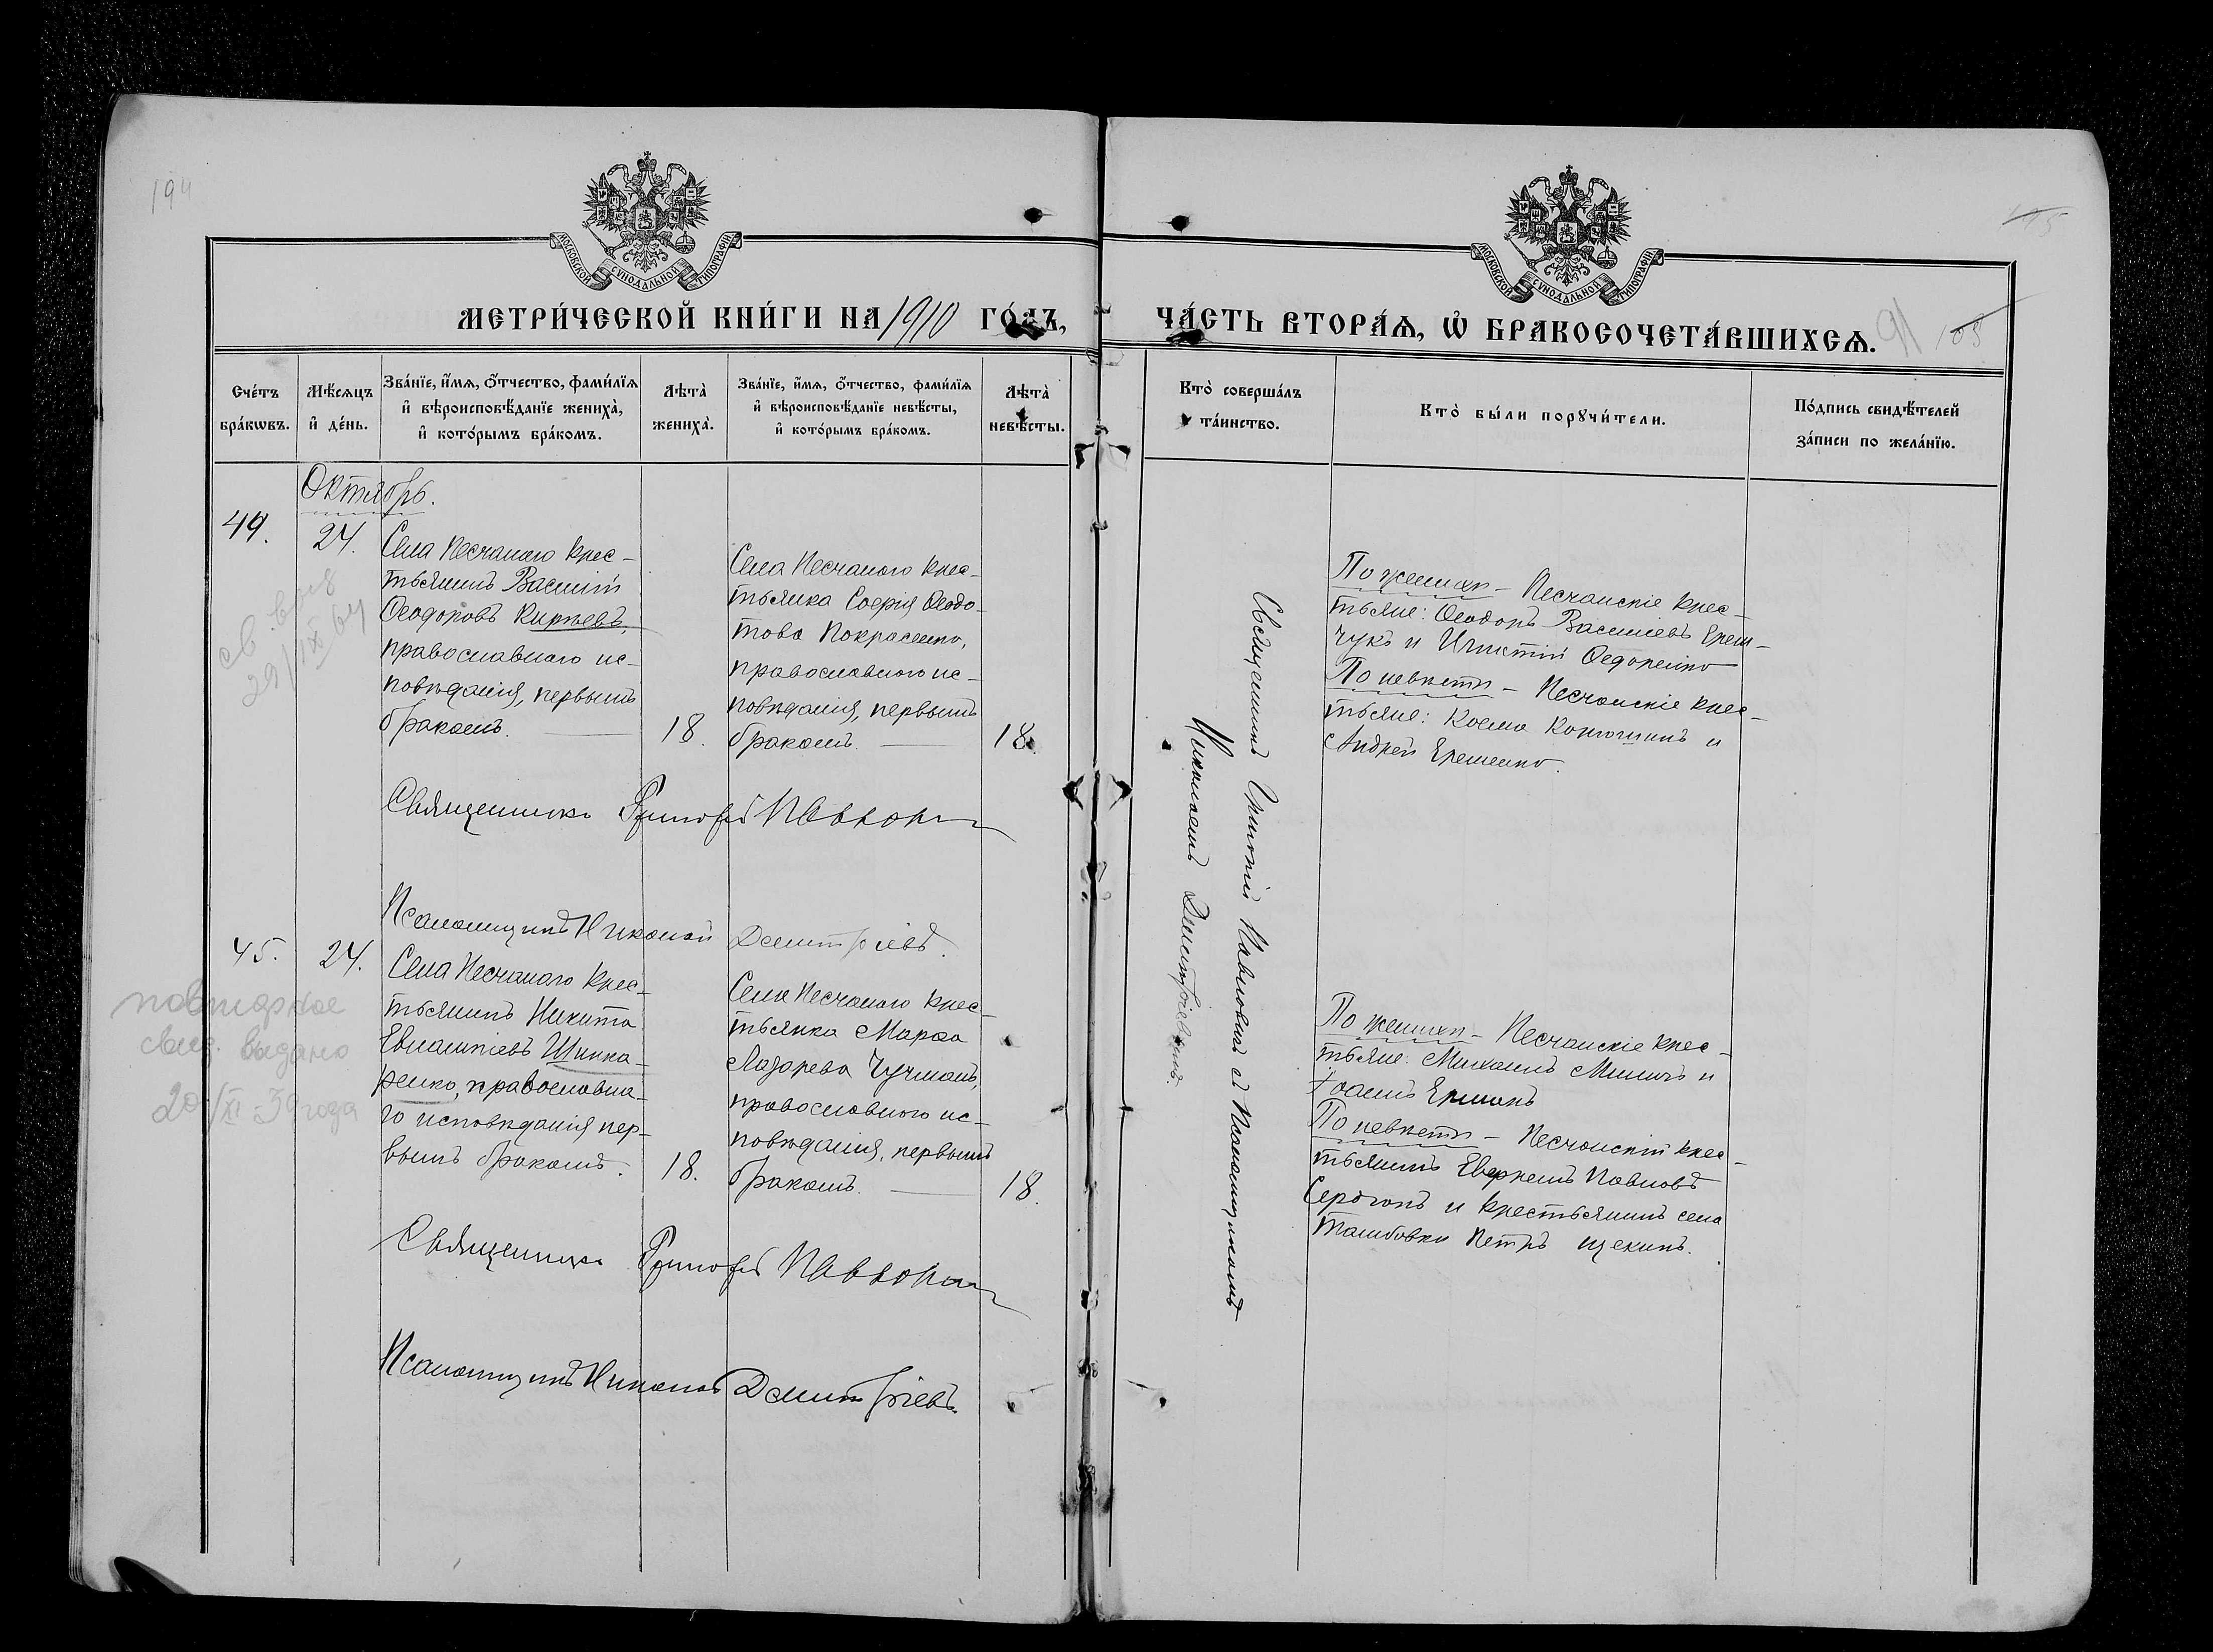 194
МОСКОВСКОЙ СѴНОДАЛЬНОЙ ТИПОГРАФІИ
МЕТРИ́ЧЕСКОЙ КНИ́ГИ НА 1910 ГО́ДЪ,
Сче́тъ бра́кѡвъ.
Мѣ́сяцъ и҆ де́нь.
Зва́нїе, и҆́мѧ, ѻ҆́тчество, фами́лїѧ и҆ вѣроисповѣ́данїе женихà, и҆ кото́рымъ бра́комъ.
Лѣ̀та женихà.
Зва́нїе, и҆́мѧ, ѻ҆́тчество, фами́лїѧ и҆ вѣроисповѣ́данїе невѣ́сты, и҆ кото́рымъ бра́комъ.
Лѣ̀та невѣ́сты.
Октябрь.
44.
24.
Села Песчанаго крес-
тьянинъ Василій
Ѳеодоровъ Киржевъ,
православнаго ис-
повѣданія, первымъ
бракомъ.
18.
Села Песчанаго крес-
тьянка Софія Ѳеодо-
това Покрасенко,
православнаго ис-
повѣданія, первымъ
бракомъ.
18.
29/IX 64
Священникъ Григорій Павлович
Псаломщикъ Николай Дмитріевъ.
45.
24.
Села Песчанаго крес-
тьянинъ Никита
Евлампіевъ Шинка-
ренко, православна-
го исповѣданія пер-
вымъ бракомъ.
18.
Села Песчанаго крес-
тьянка Марѳа
Лазарева Чучманъ,
православнаго ис-
повѣданія, первымъ
бракомъ.
18.
повторное
свид. выдано
20/XI-39 года
Священникъ Григорій Павлович
Псаломщикъ Николай Дмитріевъ.
МОСКОВСКОЙ СѴНОДАЛЬНОЙ ТИПОГРАФІИ
ЧА́СТЬ ВТОРА́Ѧ, Ѡ҆ БРАКОСОЧЕТА́ВШИХСѦ.
91
105
Кто̀ соверша́лъ та́инство.
Кто̀ бы́ли порꙋчи́тели.
По́дпись свидѣ́телей за́писи по жела́нїю.
Священникъ Григорій Павловичъ съ Псаломщикомъ
Николаемъ Дмитріевымъ.
По женихѣ – Песчанскіе крес-
тьяне: Ѳеодоръ Васильевъ Ерем-
чукъ и Игнатій Ѳедоренко
По невѣстѣ – Песчанскіе крес-
тьяне: Косма Конюшинъ и
Андрей Еременко.
По женихѣ – Песчанскіе крес-
тьяне: Михаилъ Милинъ и
Іоаннъ Ермакъ
По невѣстѣ – Песчанскій крес-
тьянинъ Павловъ
и крестьянинъ села
Тамбовки Петръ Щекинъ.